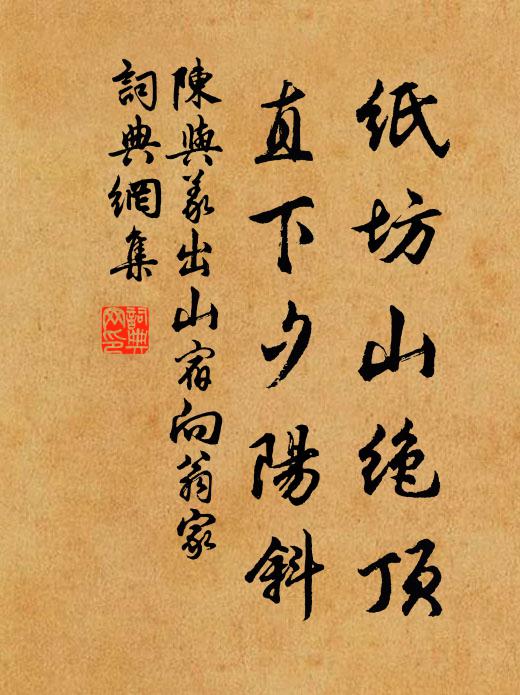 纸坊山绝顶
直下夕陽斜
陳與義出山宿向翁家
詞典網集
詞典网印